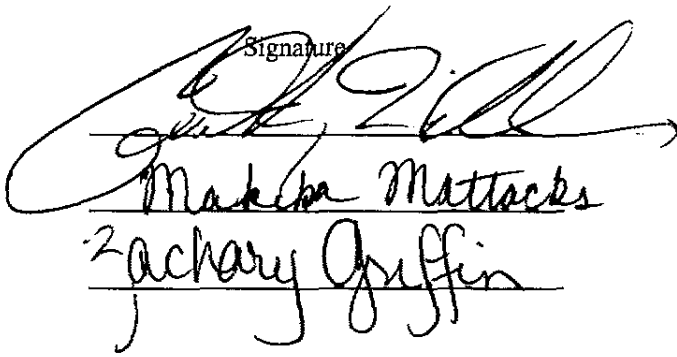 Signature
Makeba Mattocks
Zachary Griffin